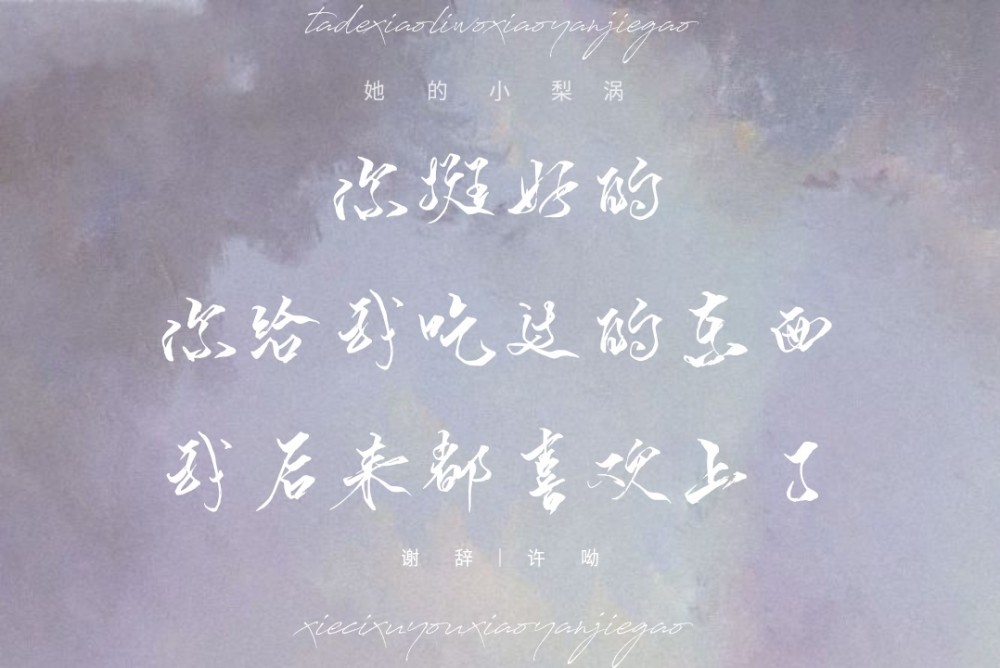 tadexiaoliwoxiaoyanjiegao
她的小梨涡
你挺好的
你给我吃过的东西
我后来都喜欢上了
谢辞|许呦
xiecixuyouxiaoyanjiegao